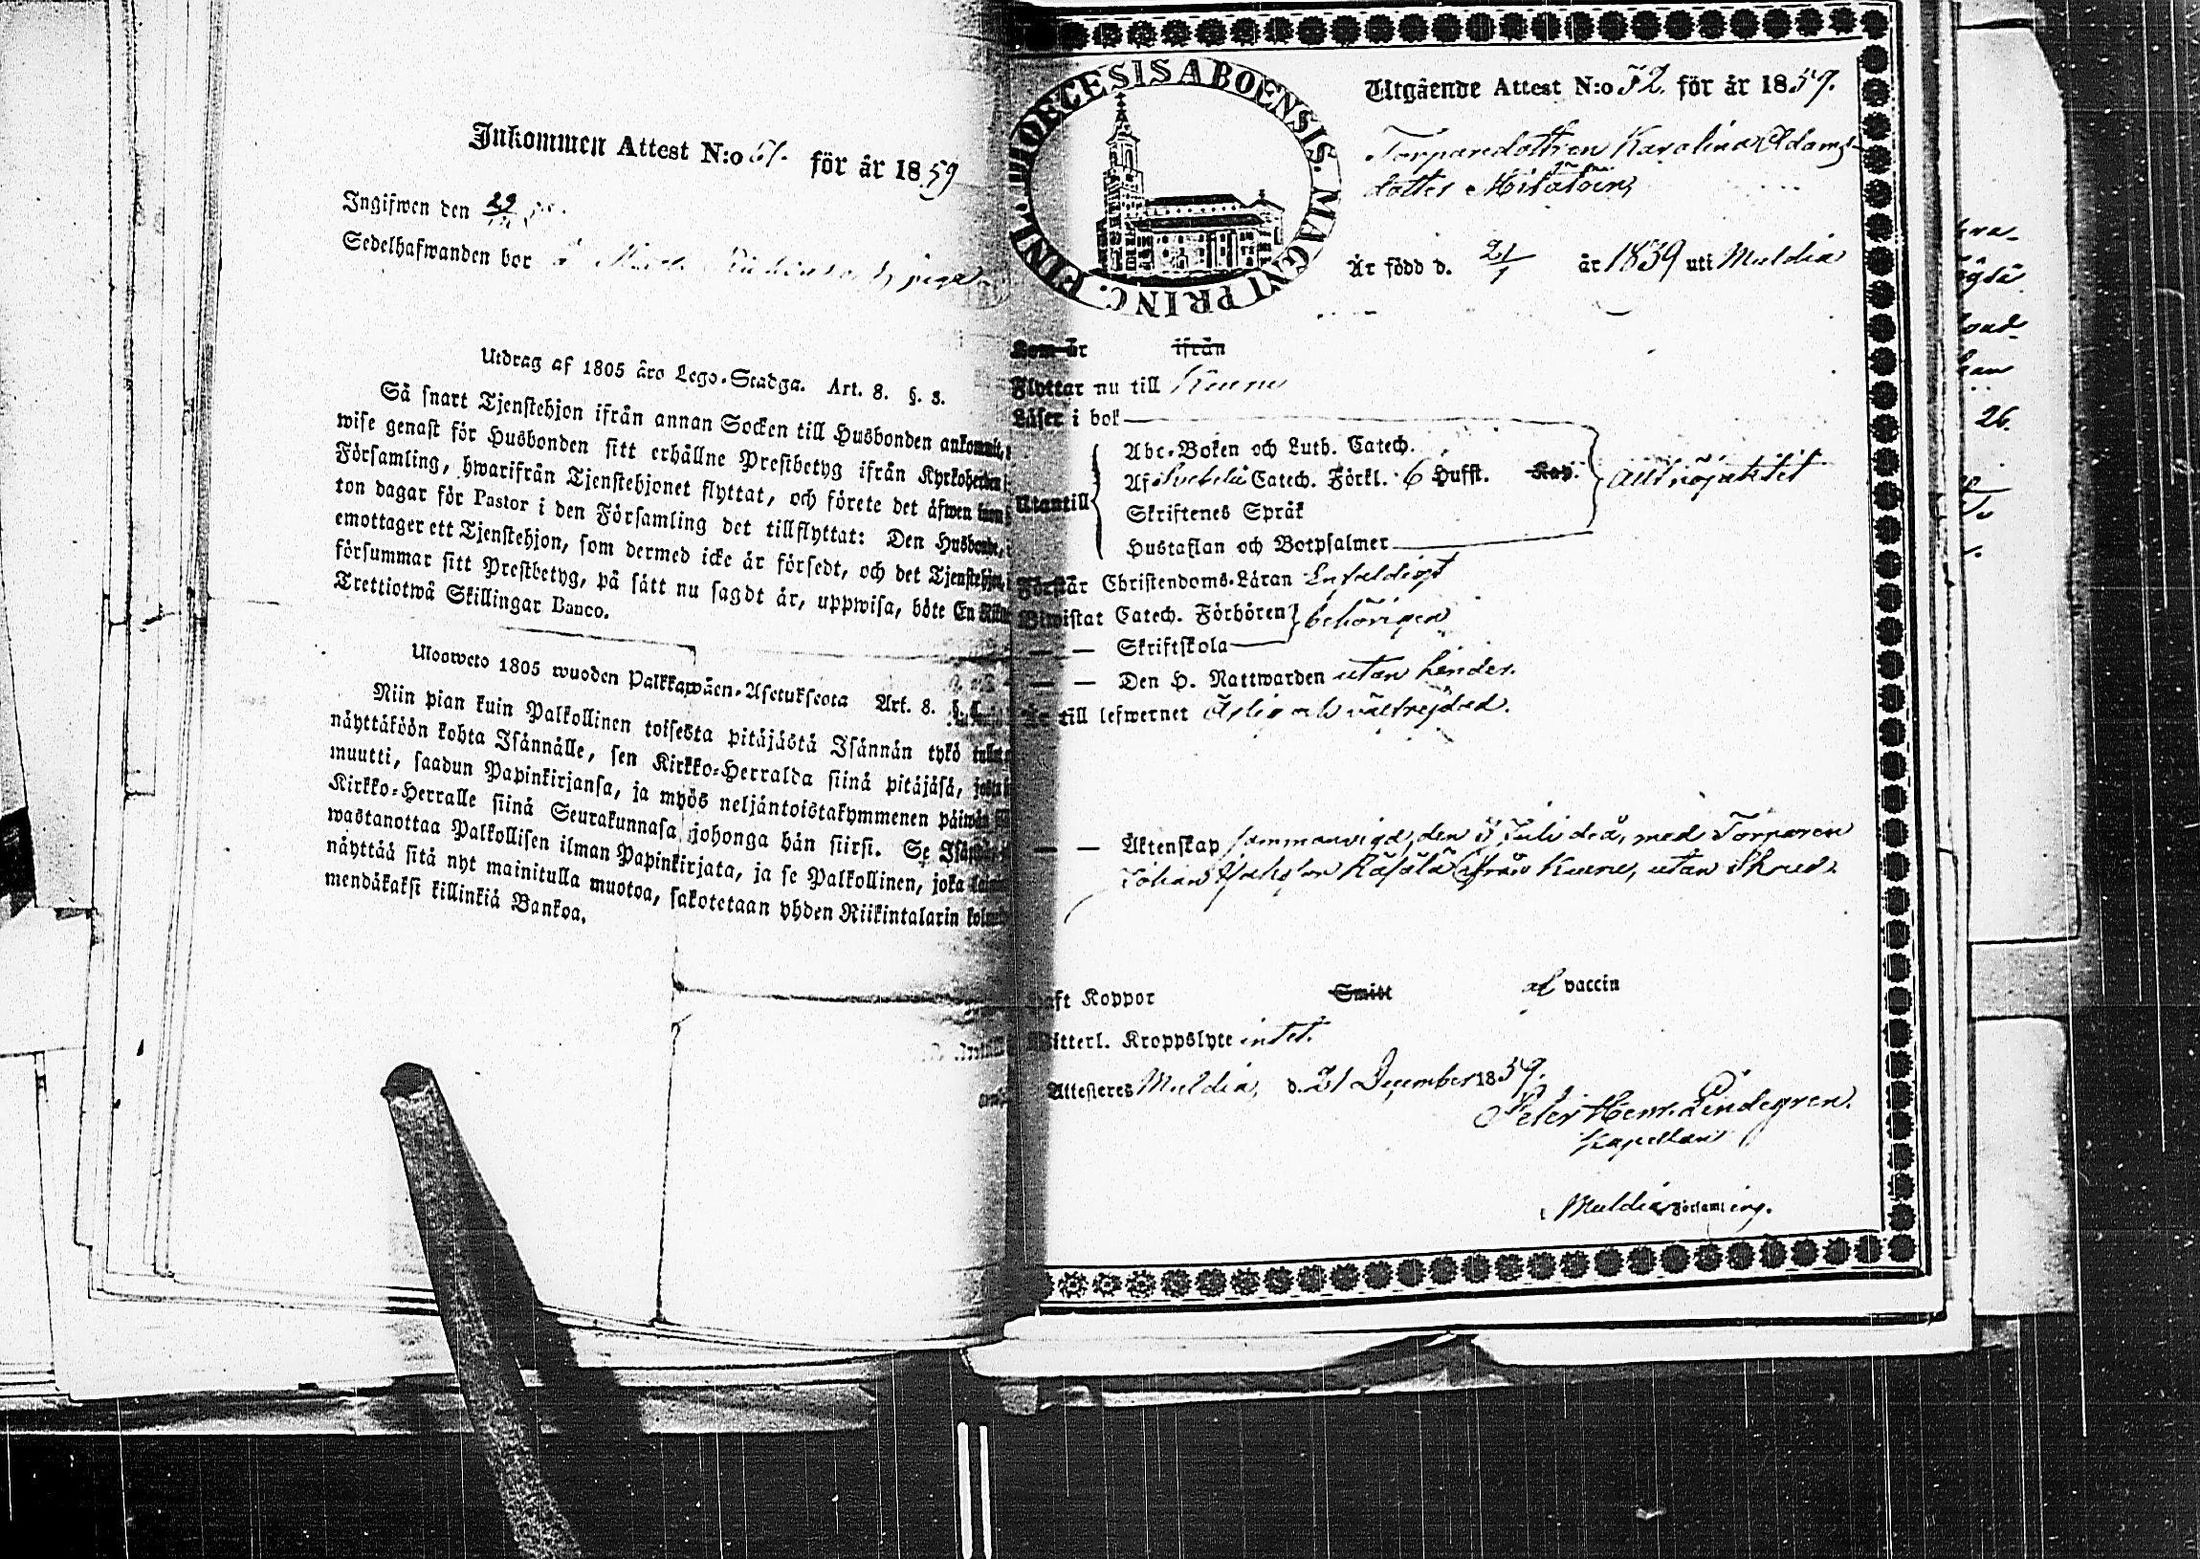 Inkommen Attest N:o 61. för år 1859
Ingifwen den 29
Sedelhafwanden bor
Utdrag af 1805 års Lego-Stadga. Art. 8. §. 3.
Så snart Tjenstehjon ifrån annan Socken till Husbonden ankommit,
wise genast för Husbonden sitt erhållne Prestbetyg ifrån Kyrkoherden i
Församling, hwarifrån Tjenstehjonet flyttat, och förete det äfwen inom
ton dagar för Pastor i den Församling det tillflyttat: Den Husbonde,
emottager ett Tjenstehjon, som dermed icke är försedt, och det Tjenstehjon,
försummar sitt Prestbetyg, på sätt nu sagdt är, uppwisa, böte En
Trettiotwå Skillingar Banco.
Ulosweto 1805 wuoden Palkkawäen-Asetuksesta Art. 8. §.
Niin pian kuin Palkollinen toisesta pitäjästä Isännän tykö
näyttäköön kohta Isännälle, sen Kirkko-Herralda siinä pitäjäsä,
muutti, saadun Papinkirjansa, ja myös neljäntoistakymmenen päiwän
Kirkko-Herralle siinä Seurakunnasa johonga hän siirsi. Se
wastanottaa Palkollisen ilman Papinkirjata, ja se Palkollinen, joka
näyttää sitä nyt mainitulla muotoa, sakotetaan yhden Riikintalarin
mendäkaksi killinkiä Bankoa.
DIOECESIS ABOENSIS. MAGNI PRINC. FINL.
Utgående Attest N:o 52. för år 1859.
Torparedottren Karolina Adams-
dotter
Är född d. 21/1 år 1839 uti Muldia
Som är ifrån
Flyttar nu till Keuru
Läser i bok
Abc-Boken och Luth. Catech.
Utantill Af Svebelii Catech. Förkl. 6 Hufst. Kap.
Skriftenes Språk
Hustaflan och Botpsalmer
Förstår Christendoms-Läran Enfaldigt
Biwistat Catech. Förhören behörigen
— — Skriftskola
— — Den H. Nattwarden utan hinder.
Är till lefwernet Ärlig och välfrejdad.
— — Äktenskap sammanvigd, den 3 Juli d.å. med Torparen
Johan från Keuru, utan
Haft Koppor Smitt af vaccin
Witterl. Kroppslyte intet.
Attesteres Muldia, d. 21 December 1859.
Peter Henr. Lindegren.
Kapellan
i Muldia Församling.
26.